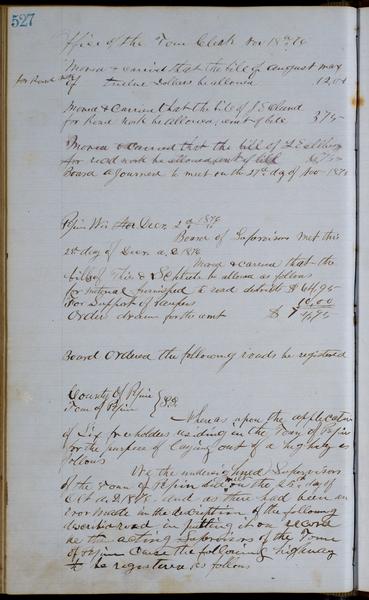 527
Office of the Town Clerk Nov 18th 78
Moved & carried that the bill of August May
for Road work of twelve dollars be allowed 12,00
Moved & Carried that the bill of
for Road work be allowed, amt of bill 3 75
Moved & Carried that the bill of
for road work be allowed, amt of bill
Board adjourned to meet on the 27th day of Nov 1878
Pepin Wis Decr. 2d 1878
Board of Supervisors met this
2d day of Decr. A.D 1878
Moved & carried that the
bill of & be allowed as follows
for material furnished to road districts $ 64,95
For Support of Paupers 10,00
Order drawn for the amt $ 74,95
Board Ordered the following roads be registered
County Of Pepin
Town of Pepin } SS
Whereas upon the application
of Six freeholders residing in the Town of Pepin
for the purpose of laying out of a highway as
follows
We the undersigned Supervisors
of the Town of Pepin did meet on the 25th day of
Oct A.D. 1878. and as there had been an
error made in the description of the following
described road in putting it on record
we the acting Supervisors of the Town
of Pepin Cause the following highway
to be registered as follows